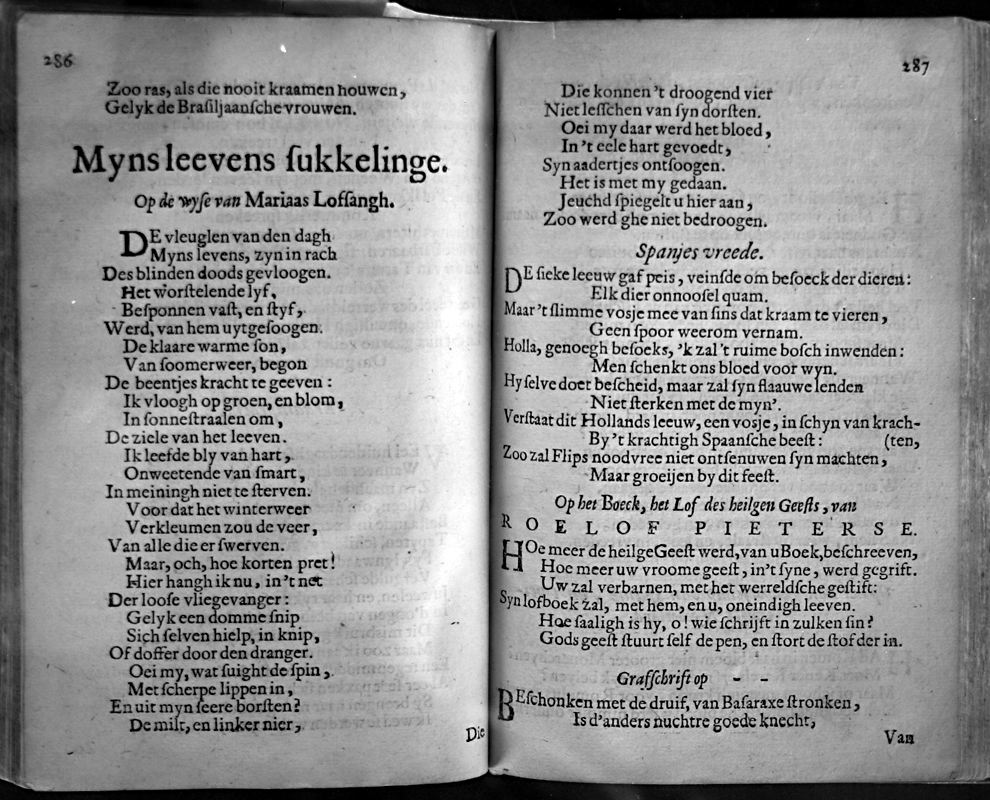 286
Zoo ras, als die nooit kraamen houwen,
Gelyk de Braſiljaanſche vrouwen.
Myns leevens ſukkelinge.
Op de wyſe van Mariaas Lofſangh.
DE vleuglen van den dagh
Myns levens, zyn in rach
Des blinden doods gevloogen.
Het worſtelende lyf,
Beſponnen vaſt, en ſtyf,
Werd, van hem uytgeſoogen.
De klaare warme ſon,
Van ſoomerweer, begon
De beentjes kracht te geeven:
Ik vloogh op groen, en blom,
In ſonneſtraalen om,
De ziele van het leeven.
Ik leefde bly van hart,
Onweetende van ſmart,
In meiningh niet te ſterven.
Voor dat het winterweer
Verkleumen zou de veer,
Van alle die er ſwerven.
Maar, och, hoe korten pret!
Hier hangh ik nu, in't net
Der looſe vliegevanger:
Gelyk een domme ſnip
Sich ſelven hielp, in knip,
Of doffer door den dranger.
Oei my, wat ſuight de ſpin,
Met ſcherpe lippen in,
En uit myn ſeere borſten?
De milt, en linker nier,
Die
287
Die konnen 't droogend vier
Niet leſſchen van ſyn dorſten.
Oei my daar werd het bloed,
In 't eele hart gevoedt,
Syn aadertjes ontſoogen.
Het is met my gedaan.
Jeuchd ſpiegelt u hier aan,
Zoo werd ghe niet bedroogen.
Spanjes vreede.
DE ſieke leeuw gaf peis, veinſde om beſoeck der dieren:
Elk dier onnooſel quam.
Maar 't ſlimme vosje mee van ſins dat kraam te vieren,
Geen ſpoor weerom vernam.
Holla, genoegh beſoeks, 'k zal 't ruime boſch inwenden:
Men ſchenkt ons bloed voor wyn.
Hy ſelve doet beſcheid, maar zal ſyn flaauwe lenden
Niet ſterken met de myn'.
Verſtaat dit Hollands leeuw, een vosje, in ſchyn van krach-
By 't krachtigh Spaanſche beeſt: (ten,
Zoo zal Flips noodvree niet ontſenuwen ſyn machten,
Maar groeijen by dit feeſt.
Op het Boeck, het Lof des heilgen Geeſts, van
ROELOF PIETERSE.
HOe meer de heilge Geeſt werd, van u Boek, beſchreeven,
Hoe meer uw vroome geeſt, in't ſyne, werd gegrift.
Uw zal verbarnen, met het werreldſche geſtift:
Syn lofboek zal, met hem, en u, oneindigh leeven.
Hoe ſaaligh is hy, o! wie ſchrijft in zulken ſin?
Gods geeſt ſtuurt ſelf de pen, en ſtort de ſtof der in.
Graffſchrift op - -
BEſchonken met de druif, van Baſaraxe ſtronken,
Is d'anders nuchtre goede knecht,
Van